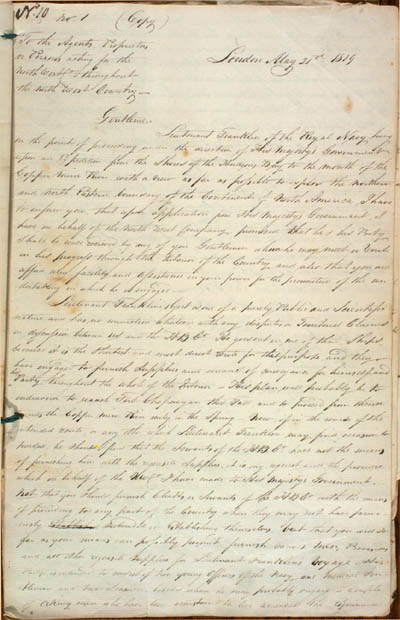 No 10 No. 1 (Copy)
To the Agents, Proprietors
or Persons acting for the
North West Co throughout
the North West Country
London May 21st 1819
Gentlemen
Lieutenant Franklin of the Royal Navy, being
on the point of proceeding under the direction of His Majesty's Government
upon an Expedition from the Shores of the Hudsons Bay to the mouth of the
Copper Mine River with a view as far as possible to explore the Northern
and North Eastern boundary of the Continent of North America I have
to inform you that upon application from His Majesty's Government, I
have on behalf of the North West Company promised that he & his Party
shall be well received by any of you Gentlemen whom he may meet or visit
in his progress through the Interior of the Country and also that you will
afford every facility and assistance in your power for the promotion of the
undertaking in which he is engaged
Lieutenant Franklin's object is one of a purely Public and Scientific
nature and has no connection whatever with any disputes or Territorial Claims
in discussion between us and the HBCo. He goes out in one of their Ships
because it is the shortest and most direct Route for that purpose and they
have engaged to furnish Supplies and means of conveyance for himself and
Party throughout the whole of the Interior. His plan will probably be to
endeavour to reach Fort Chepewyan this Fall and to proceed from thence
towards the Copper Mine River early in the Spring. Now if in the course of the
intended route or any other which Lieutenant Franklin may find occasion to
pursue, he should find that the Servants of the HBCo have not the means
of furnishing him with the requisite Supplies, it is my request and the promise
which on behalf of the NWCo I have made to His Majesty's Government
Not that you should furnish Clerks or Servants of the HBCo with the means
of proceeding to any part of the Country where they may not have formerly
established themselves, but that you will so
far as your means can possibly permit, furnish
and all other requisite Supplies for Lieutenant Franklin's Voyage. His
Party consists of two young Officers of the Navy, one Medical Gentleman
and two Seamen, besides whom he may probably engage a couple
of Orkney men who have been